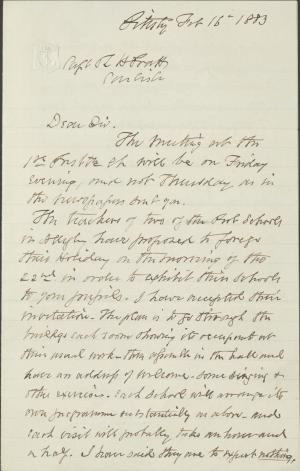 Pitts'g Feb 16th 1883
Capt R H Pratt
Carlisle
Dear Sir.
The meeting at the
1st Presbtn Ch will be on Friday
evening, and not Thursday as in
the newspapers sent you.
The teachers of two of the Schools
in Alleghy have proposed to forego
their Holiday on the morning of the
22nd in order to exhibit their schools
to your pupils. I have accepted their
invitation. The plan is to go through the
buildings each room showing its occupants at
their usual work. then assemble in the hall and
have an address of welcome. Some singing &
other exercises. Each School will arrange its
own programme substantially as above. and
each visit will probably take an hour and
a half. I have said they are to expect nothing.